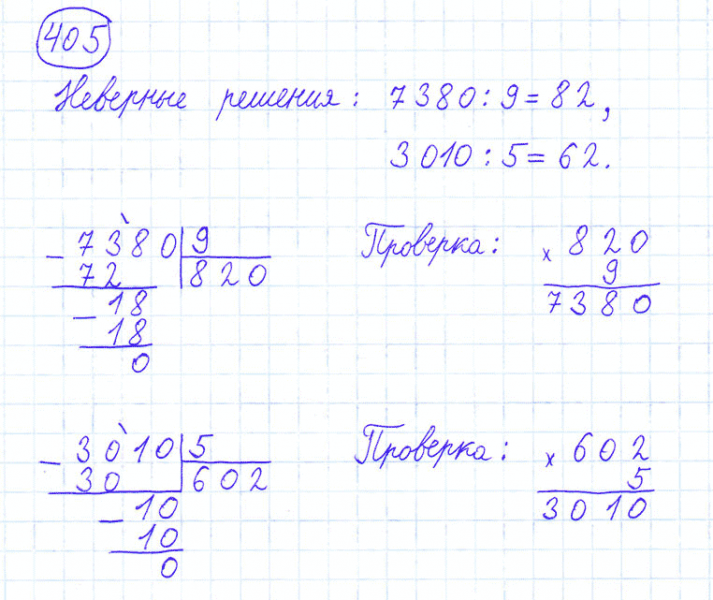 405
Неверные решения: 7380:9=82,
3010:5=62.
- 7380 | 9
72 | 820
- 18
18
0
Проверка:
x 820
9
7380
- 3010 | 5
30 | 602
- 10
10
0
Проверка:
x 602
5
3010